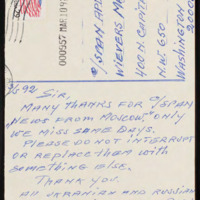 000957 MAR 10 92
C/SPAN APP
VIEWERS
400 N. CAPITO
N.W. 650
WASHINGTON
2000
3/5 92
SIR,
MANY THANKS FOR C/SPAN
"NEWS FROM MOSCOW", ONLY
WE MISS SOME DAYS.
PLEASE DO NOT INTERRUPT
OR REPLACE THEM WITH
SOMETHING ELSE.
THANK YOU.
ALL UKRANIAN AND RUSSIAN